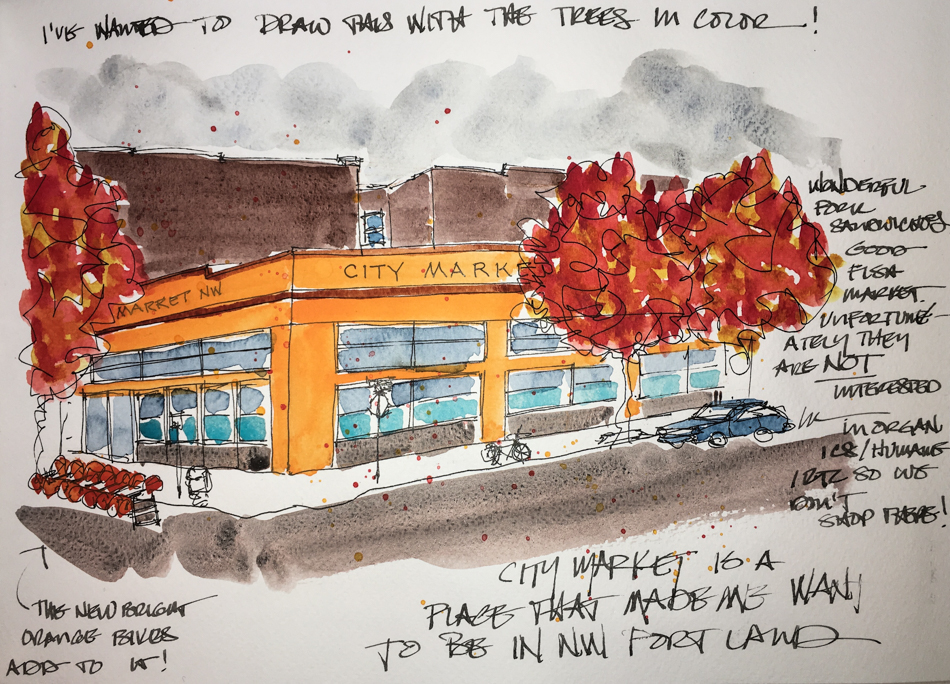 I'VE WANTED TO DRAW THIS WITH THE TREES IN COLOR!
CITY MARKE
MARKET NW
WONDERFUL
PORK
SANDWICHES
GOOD
FISH
MARKET.
UNFORTUNE-
ATELY THEY
ARE NOT
INTERESTED
IN ORGAN
ICS/HUMANE
SO WE
DON'T
SHOP THERE!
CITY MARKET IS A
PLACE THAT MADE ME WANT
TO BE IN NW PORTLAND
THE NEW BRIGHT
ORANGE BIKES
ADD TO IT!